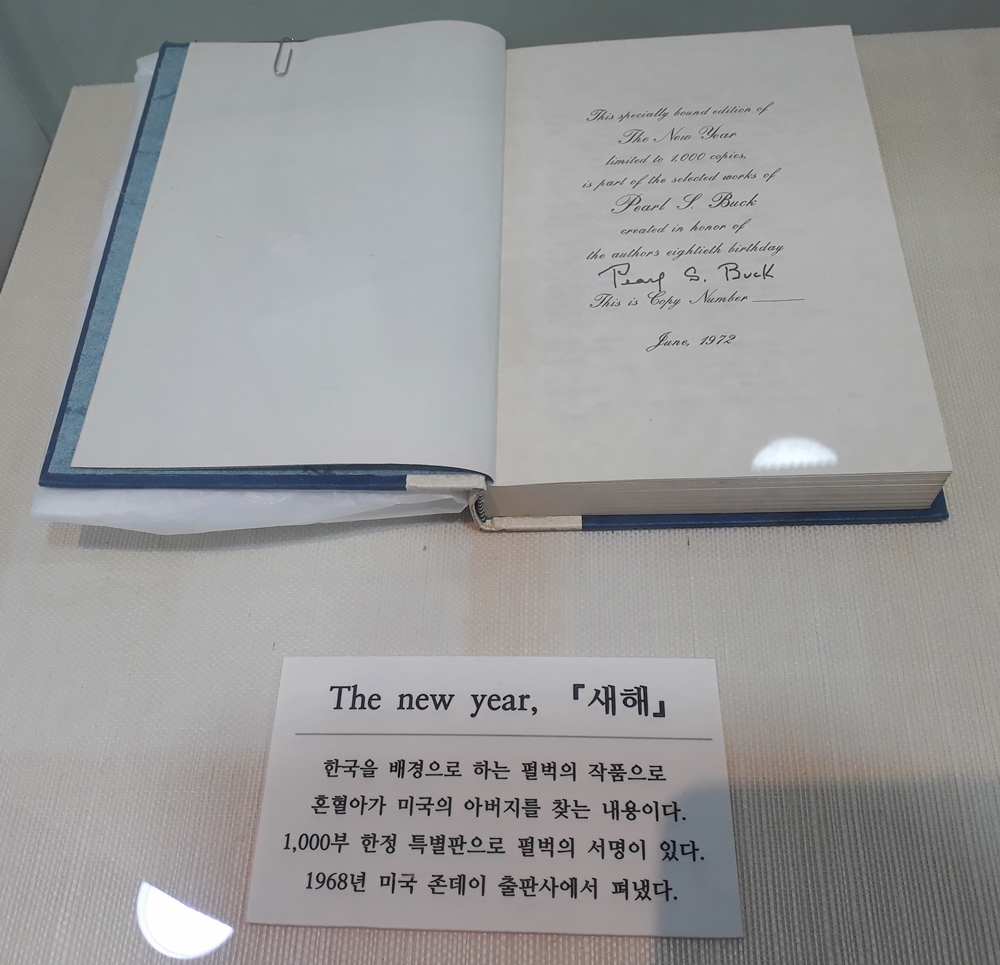 This specially bound edition of
The New Year
limited to 1,000 copies,
is part of the selected works of
Pearl S. Buck
created in honor of
the authors eightieth birthday
Pearl S. Buck
This is Copy Number
June, 1972
The new year, 『새해』
한국을 배경으로 하는 펄벅의 작품으로
혼혈아가 미국의 아버지를 찾는 내용이다.
1,000부 한정 특별판으로 펄벅의 서명이 있다.
1968년 미국 존데이 출판사에서 펴냈다.